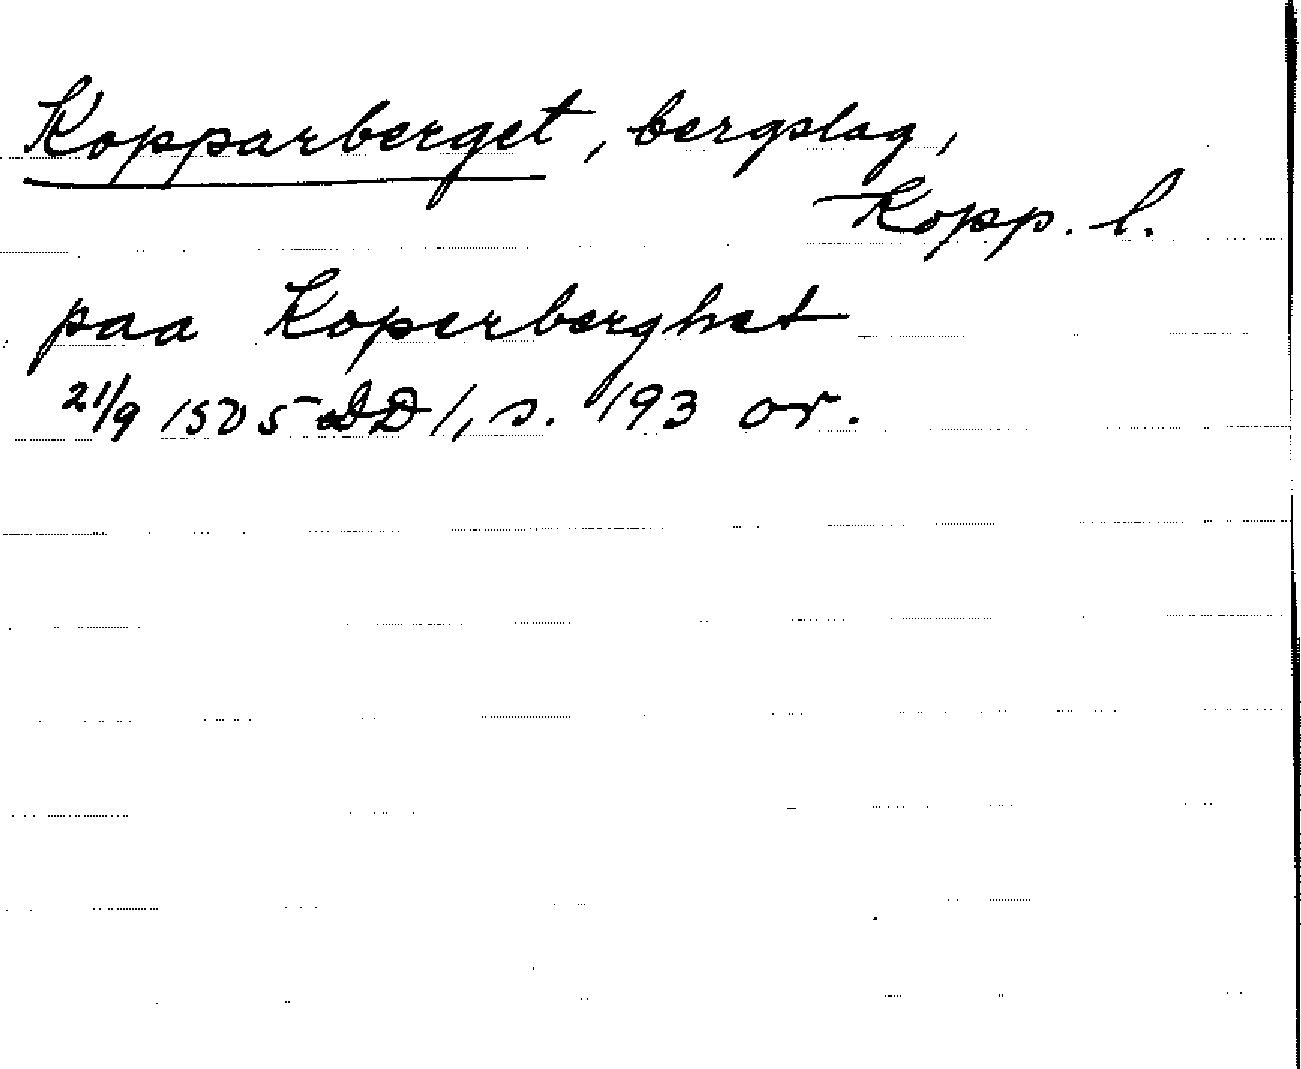 Kopparberget, bergslag,
Kopp. l.
paa Koperberghet
21/9 1505 DD 1, s. 193 or.